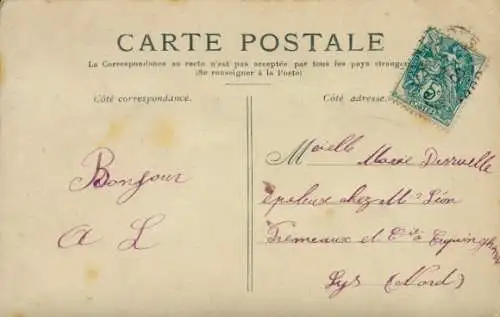 CARTE POSTALE
La Correspondance au recto n'est pas acceptée par tous les pays étrangers
(Se renseigner à la Poste)
Côté correspondance.
Côté adresse.
Bonjour
A L
Melle Marie Derruelle
chez Mr Léon
Fremeaux et Cie à Erquinghem
Lys (Nord)